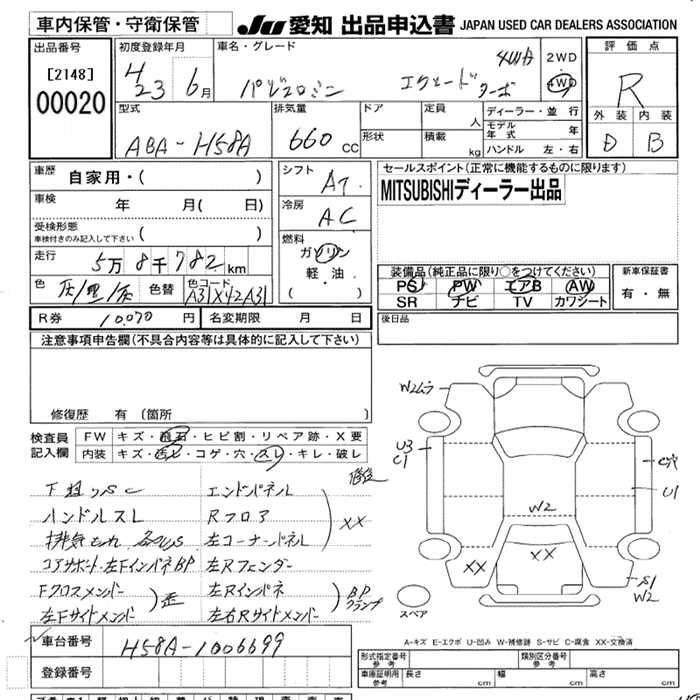 車内保管・守衛保管
JU 愛知 出品申込書 JAPAN USED CAR DEALERS ASSOCIATION
出品番号
[2148]
00020
初度登録年月
4/23 6月
車名・グレード
パジェロミニ エクシードターボ 4WD
2WD
4WD
評価点
R
外装 内装
D B
型式
ABA-H58A
排気量
660 CC
ドア
形状
定員
人
積載
kg
ディーラー・並行
モデル年式 年
ハンドル 左・右
車歴 自家用・( )
車検 年 月( 日)
受検形態
車検付きのみ記入して下さい ( )
走行 5万8千782km
色 灰/黒/灰 色替 色コード A31X42A31
シフト
AT
冷房
AC
燃料
ガソリン
軽・油
( )
セールスポイント(正常に機能するものに限ります)
MITSUBISHIディーラー出品
装備品(純正品に限り○をつけてください)
PS PW エアB AW
SR ナビ TV カワシート
新車保証書
有・無
R券 10,070円 名変期限 月 日
後日品
注意事項申告欄(不具合内容等は具体的に記入して下さい)
修復歴 有(箇所 )
検査員
記入欄
FW キズ・飛石・ヒビ割・リペア跡・X要
内装 キズ・汚レ・コゲ・穴・スレ・キレ・破レ
修後
下廻りSC エンドパネル
ハンドルスレ Rフロア XX
排気もれ 左コーナーパネル
コアサポート・左FインパネBP 左Rフェンダー
Fクロスメンバー 左Rインパネ BP
左Fサイドメンバー 歪 左右Rサイドメンバー クランプ
W2ムラ
U3
C1
C穴
U1
W2
XX
XX
S1
W2
スペア
A-キズ E-エクボ U-凹み W-補修跡 S-サビ C-腐食 XX-交換済
車台番号 H58A-1006699
登録番号
形式指定番号
参考
類別区分番号
参考
車庫証明用
参考
長さ cm 幅 cm 高さ cm